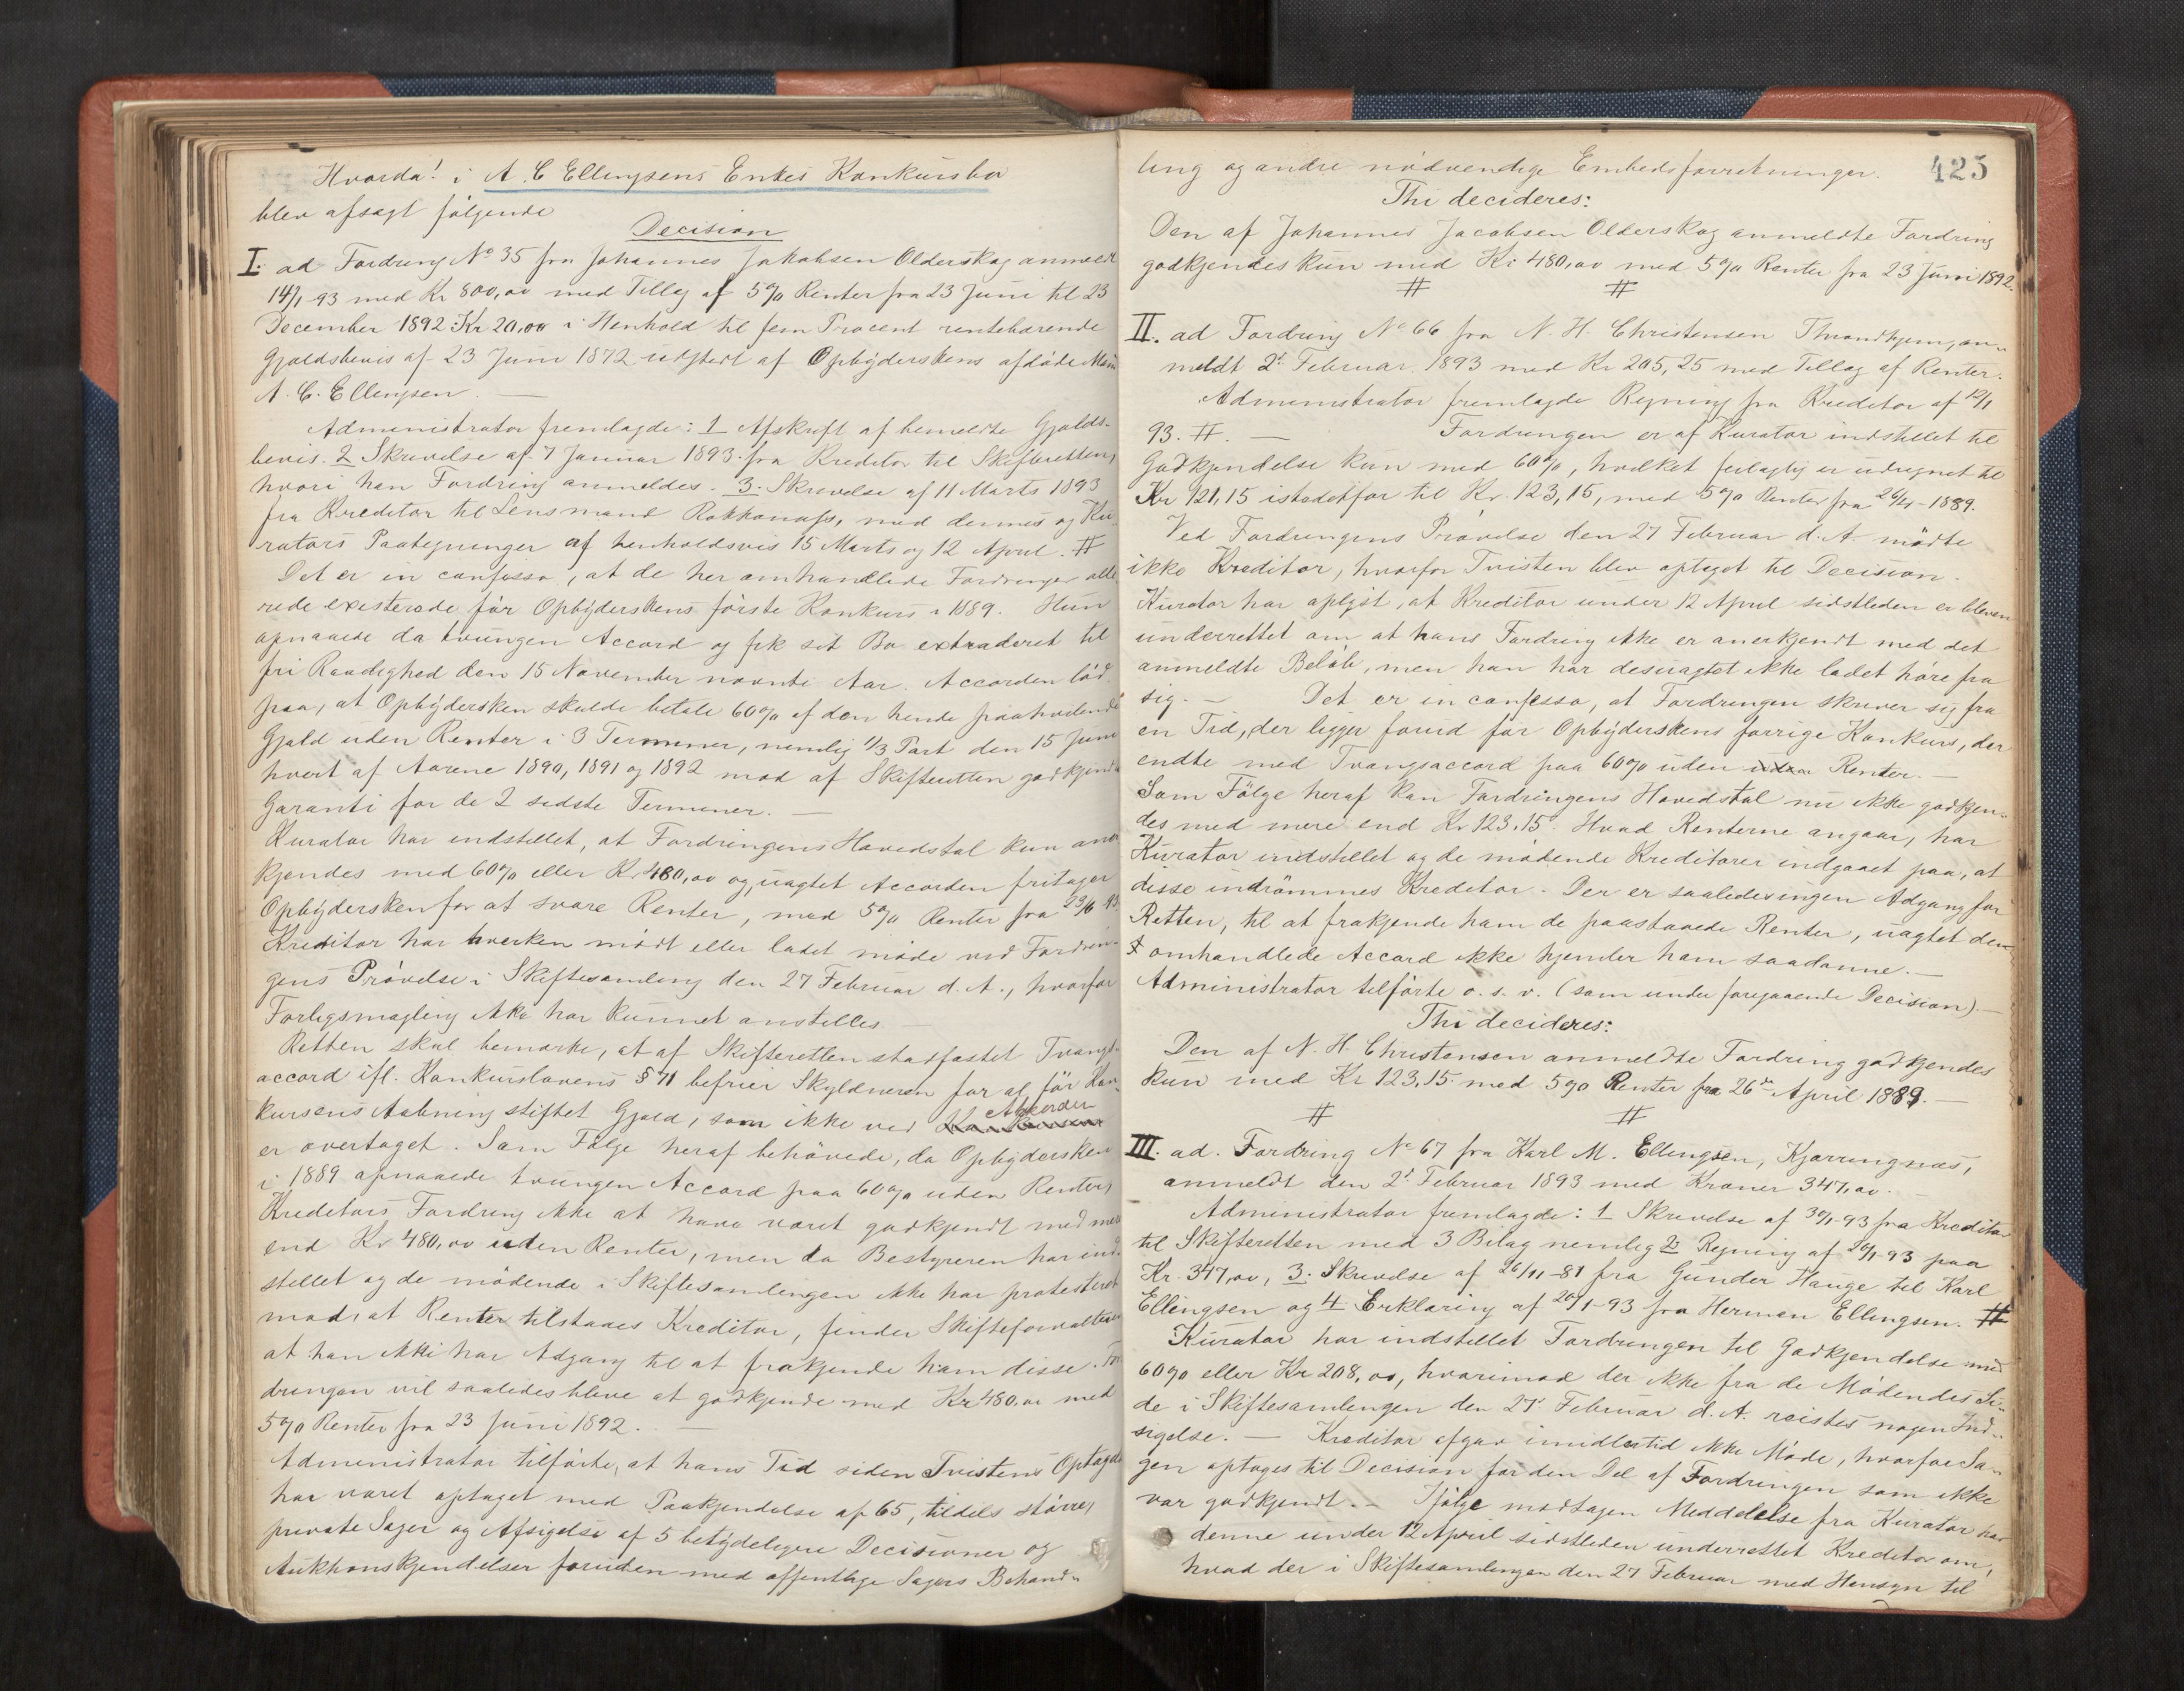 Hvorda! i A. C Ellingsens Enkes Konkursbo
blev afsagt følgende
Decision
I. ad Fordring No 35 fra Johannes Jakobsen Olderskog anmeldt
14/1-93 med Kr 800,00 med Tillæg af 5% Renter fra 23 Juni til 23
December 1892 Kr 20,00 i Henhold til fem Procent rentebærende
Gjældsbevis af 23 Juni 1872 udstedt af Opbyderskens afdøde Mand
A. C. Ellingsen. —
Administrator fremlagde: 1 Afskrift af bemeldte Gjælds-
bevis. 2 Skrivelse af 7 Januar 1893 fra Kreditor til Skifteretten,
hvori han Fordring anmeldes. 3. Skrivelse af 11 Marts 1893
fra Kreditor til Lensmand med dennes og Ku-
rators Paategninger af henholdsvis 15 Marts og 12 April. #
Det er in confesso, at de her omhandlede Fordringer alle-
rede existerede før Opbyderskens første Konkurs i 1889. Hun
opnaaede da tvungen Accord og fik sit Bo extraderet til
fri Raadighed den 15 November nævnte Aar. Accorden lød
paa, at Opbydersken skulde betale 60% af den hende paahvilende
Gjæld uden Renter i 3 Terminer, nemlig 1/3 Part den 15 Juni
hvert af Aarene 1890, 1891 og 1892 mod af Skifteretten godkjendt
Garanti for de 2 sidste Terminer. —
Kurator har indstillet, at Fordringens Hovedstol kun aner-
kjendes med 60% eller Kr 480,00 og, uagtet Accorden fritager
Opbydersken for at svare Renter, med 5% Renter fra 23/6
Kreditor har hverken mødt eller ladet møde ved Fordrin-
gens Prøvelse i Skiftesamling den 27 Februar d. A., hvorfor
Forligsmægling ikke har kunnet anstilles. —
Retten skal bemærke, at af Skifteretten stadfæstet Tvangs-
accord ifl. Konkurslovens § 71 befrier Skyldneren for al før Kon-
kursens Aabning stiftet Gjæld, som ikke ved Akkorden
er overtaget. Som Følge heraf behøvede, da Opbydersken
i 1889 opnaaede tvungen Accord paa 60% uden Renter,
Kreditors Fordring ikke at have været godkjendt med mere
end Kr 480,00 uden Renter, men da Bestyreren har ind-
stillet og de mødende i Skiftesamlingen ikke har protesteret
mod, at Renter tilstaaes Kreditor, finder Skifteforvalteren
at han ikke har Adgang til at frakjende ham disse. For-
dringen vil saaledes blive at godkjende med Kr 480,00 med
5% Renter fra 23 Juni 1892. —
Administrator tilførte, at hans Tid siden Tvistens Optagelse
har været optaget med Paakjendelse af 65, tildels større,
private Sager og Afsigelse af 5 betydeligere Decisioner og
Auktionskjendelser foruden med offentlige Sagers Behand-
423
ling og andre nødvendige Embedsforretninger.
Thi decideres:
Den af Johannes Jacobsen Olderskog anmeldte Fordring
godkjendes kun med Kr 480,00 med 5% Renter fra 23 Juni 1892.
# #
II. ad Fordring No 66 fra N. H. Christensen Throndhjem, an-
meldt 2' Februar 1893 med Kr 205,25 med Tillæg af Renter.
Administrator fremlagde Regning fra Kreditor af 12/1
93. #. — Fordringen er af Kurator indstillet til
Godkjendelse kun med 60%, hvilket feilagtig er udregnet til
Kr 121,15 istedetfor til Kr. 123,15, med 5% Renter fra 26/4-1889.
Ved Fordringens Prøvelse den 27 Februar d. A. mødte
ikke Kreditor, hvorfor Tvisten blev optaget til Decision.
Kurator har oplyst, at Kreditor under 12 April sidstleden er bleven
underrettet om at hans Fordring ikke er anerkjendt med det
anmeldte Beløb, men han har desuagtet ikke ladet høre fra
sig. — Det er in confesso, at Fordringen skriver sig fra
en Tid, der ligger forud for Opbyderskens forrige Konkurs, der
endte med Tvangsaccord paa 60% uden Renter. —
Som Følge heraf kan Fordringens Hovedstol nu ikke godkjen-
des med mere end Kr 123,15. Hvad Renterne angaar, har
Kurator indstillet og de mødende Kreditorer indgaaet paa, at
disse indrømmes Kreditor. Der er saaledes ingen Adgang for
Retten, til at frakjende ham de paastaaede Renter, uagtet den
omhandlede Accord ikke hjemler ham saadanne. —
Administrator tilførte o. s. v. (som under foregaaende Decision). —
Thi decideres:
Den af N. H. Christensen anmeldte Fordring godkjendes
kun med Kr 123,15 med 5% Renter fra 26de April 1889. —
# #
III. ad. Fordring No 67 fra Karl M. Ellingsen, Kjærringnæs,
anmeldt den 2' Februar 1893 med Kroner 347,00.
Administrator fremlagde: 1 Skrivelse af 30/1-93 fra Kreditor
til Skifteretten med 3 Bilag nemlig 2 Regning af 20/1-93 paa
Kr. 347,00, 3. Skrivelse af 26/11-81 fra Gunder Hauge til Karl
Ellingsen og 4. Erklæring af 20/1-93 fra Herman Ellingsen. #
Kurator har indstillet Fordringen til Godkjendelse med
60% eller Kr 208,00, hvorimod der ikke fra de Mødendes Si-
de i Skiftesamlingen den 27 Februar d. A. reistes nogen Ind-
sigelse. — Kreditor afgav imidlertid ikke Møde, hvorfor Sa-
gen optages til Decision for den Del af Fordringen som ikke
var godkjendt. — Ifølge modtagen Meddelelse fra Kurator har
denne under 12 April sidstleden underrettet Kreditor om,
hvad der i Skiftesamlingen den 27 Februar med Hensyn til